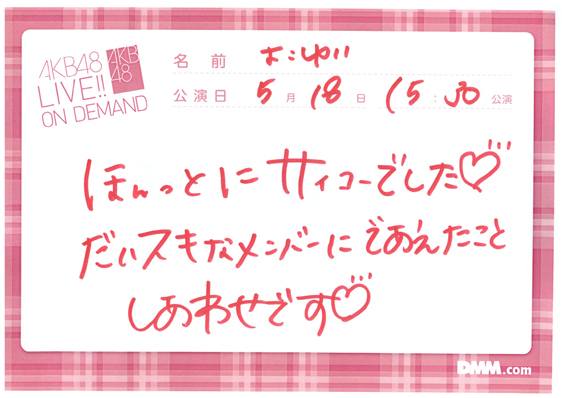 AKB48
LIVE!!
ON DEMAND
AKB
48
名前 よこゆい
公演日 5月18日 15:30公演
ほんっとにサイコーでした♡
だいスキなメンバーにであえたこと
しあわせです♡
DMM.com